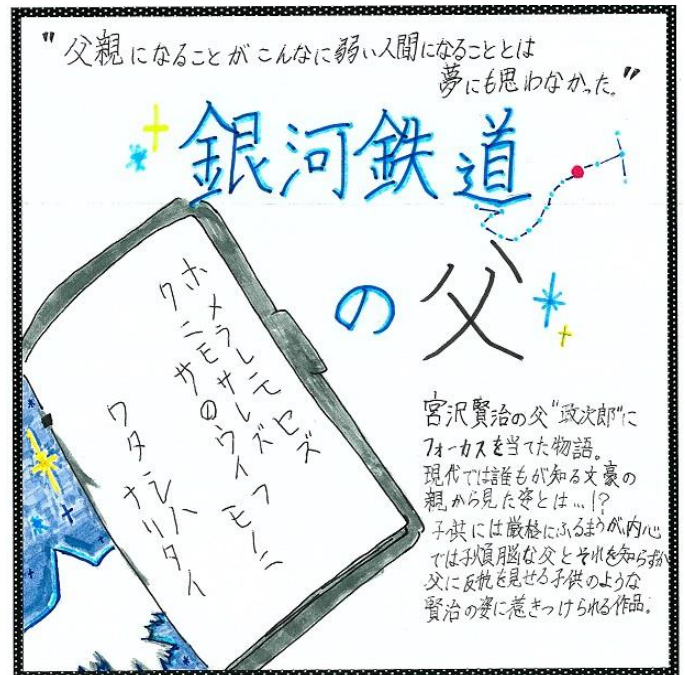 "父親になることがこんなに弱い人間になることとは
夢にも思わなかった。"
銀河鉄道
の父
ホメラレモセズ
クニモサレズ
サウイフモノニ
ワタシハ
ナリタイ
宮沢賢治の父"政次郎"に
フォーカスを当てた物語。
現代では誰もが知る文豪の
親から見た姿とは...!?
子供には厳格にふるまうが、内心
では子煩脳な父とそれを知らずか
父に反抗を見せる子供のような
賢治の姿に惹きつけられる作品。